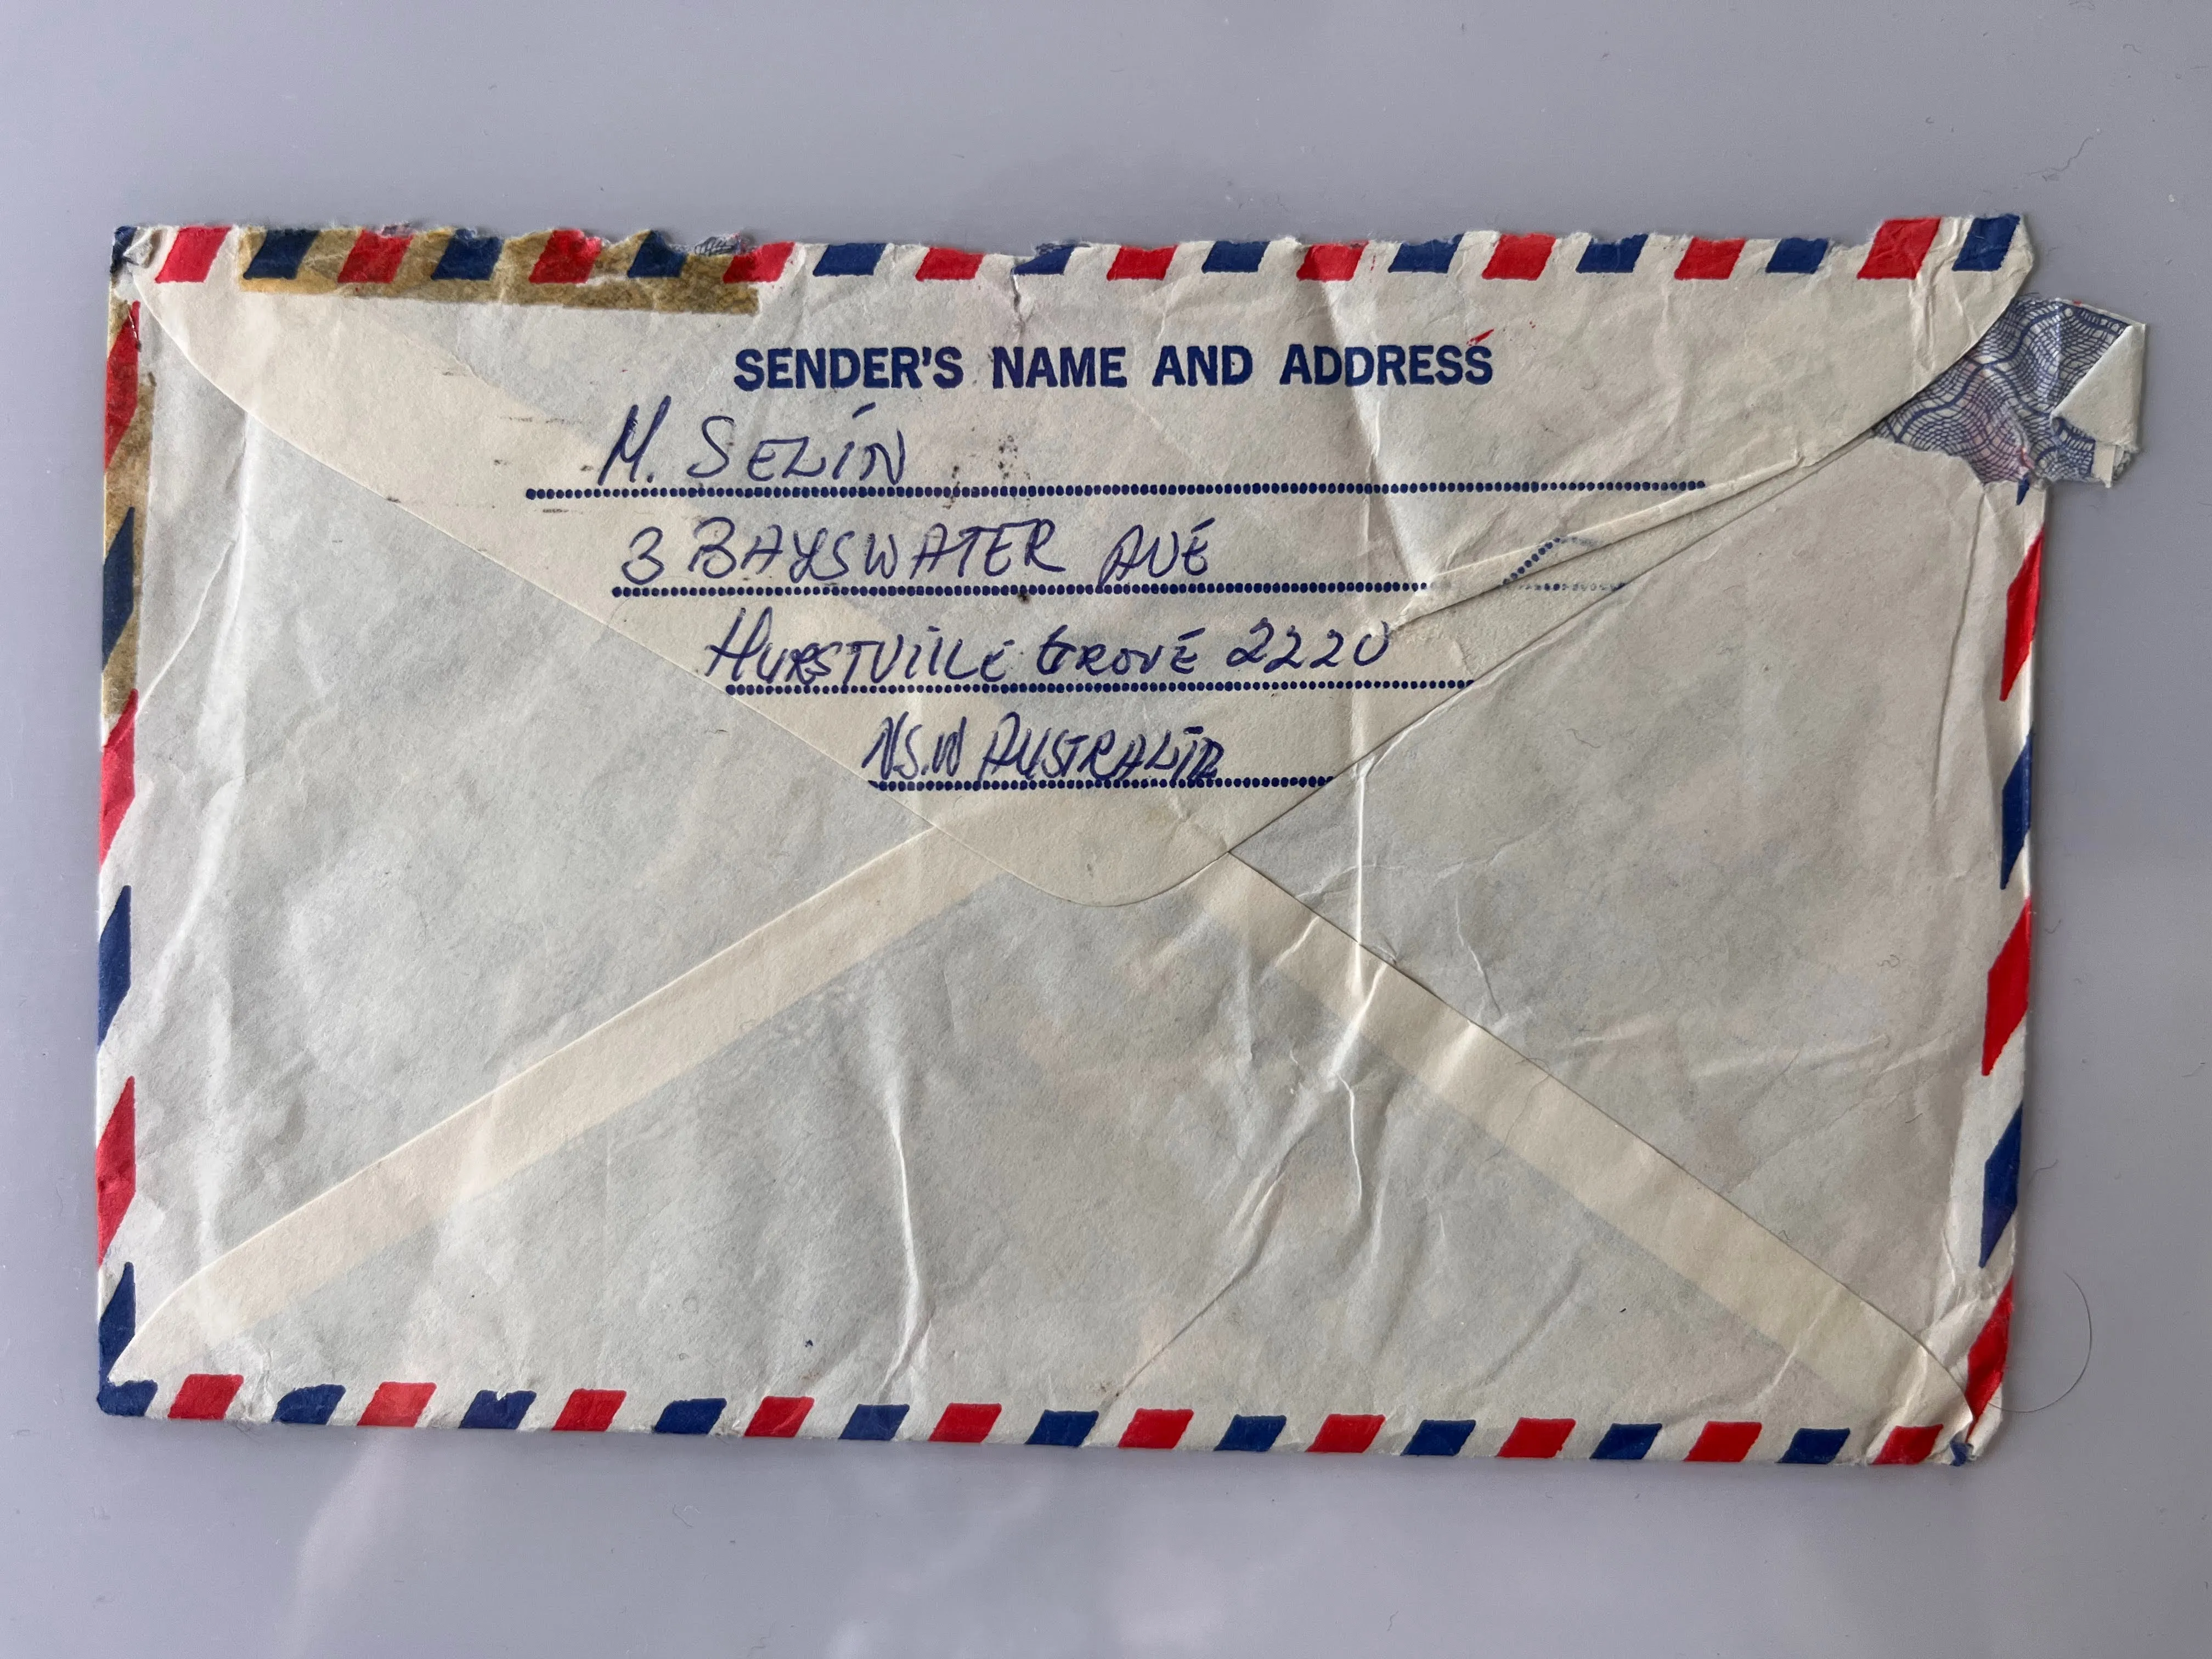 SENDER'S NAME AND ADDRESS
M. SEZIN
3 BAYSWATER AVE
HURSTVILLE GROVE 2220
N.S.W AUSTRALIA